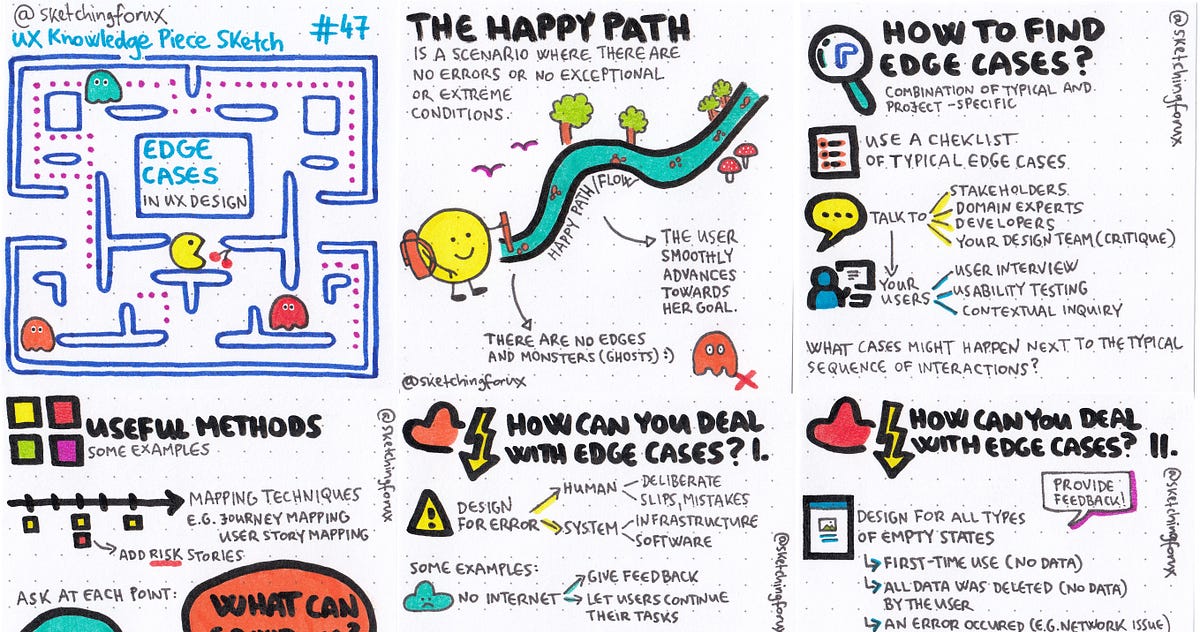 @sketchingforux
UX Knowledge Piece Sketch
#47
EDGE
CASES
IN UX DESIGN
THE HAPPY PATH
IS A SCENARIO WHERE THERE ARE
NO ERRORS OR NO EXCEPTIONAL
OR EXTREME
CONDITIONS.
HAPPY PATH/FLOW
THE USER
SMOOTHLY
ADVANCES
TOWARDS
HER GOAL.
THERE ARE NO EDGES
AND MONSTERS (GHOSTS) :)
@sketchingforux
HOW TO FIND
EDGE CASES?
COMBINATION OF TYPICAL AND
PROJECT-SPECIFIC
@sketchingforux
USE A CHEKLIST
OF TYPICAL EDGE CASES.
TALK TO
STAKEHOLDERS
DOMAIN EXPERTS
DEVELOPERS
YOUR DESIGN TEAM (CRITIQUE)
YOUR
USERS
USER INTERVIEW
USABILITY TESTING
CONTEXTUAL INQUIRY
WHAT CASES MIGHT HAPPEN NEXT TO THE TYPICAL
SEQUENCE OF INTERACTIONS?
USEFUL METHODS
SOME EXAMPLES
@sketchingforux
MAPPING TECHNIQUES
E.G. JOURNEY MAPPING
USER STORY MAPPING
ADD RISK STORIES
ASK AT EACH POINT:
WHAT CAN
HOW CAN YOU DEAL
WITH EDGE CASES? I.
DESIGN
FOR ERROR
HUMAN
DELIBERATE
SLIPS, MISTAKES
SYSTEM
INFRASTRUCTURE
SOFTWARE
SOME EXAMPLES:
NO INTERNET
GIVE FEEDBACK
LET USERS CONTINUE
THEIR TASKS
@sketchingforux
HOW CAN YOU DEAL
WITH EDGE CASES? II.
PROVIDE
FEEDBACK!
@sketchingforux
DESIGN FOR ALL TYPES
OF EMPTY STATES
FIRST-TIME USE (NO DATA)
ALL DATA WAS DELETED (NO DATA)
BY THE USER
AN ERROR OCCURED (E.G. NETWORK ISSUE)